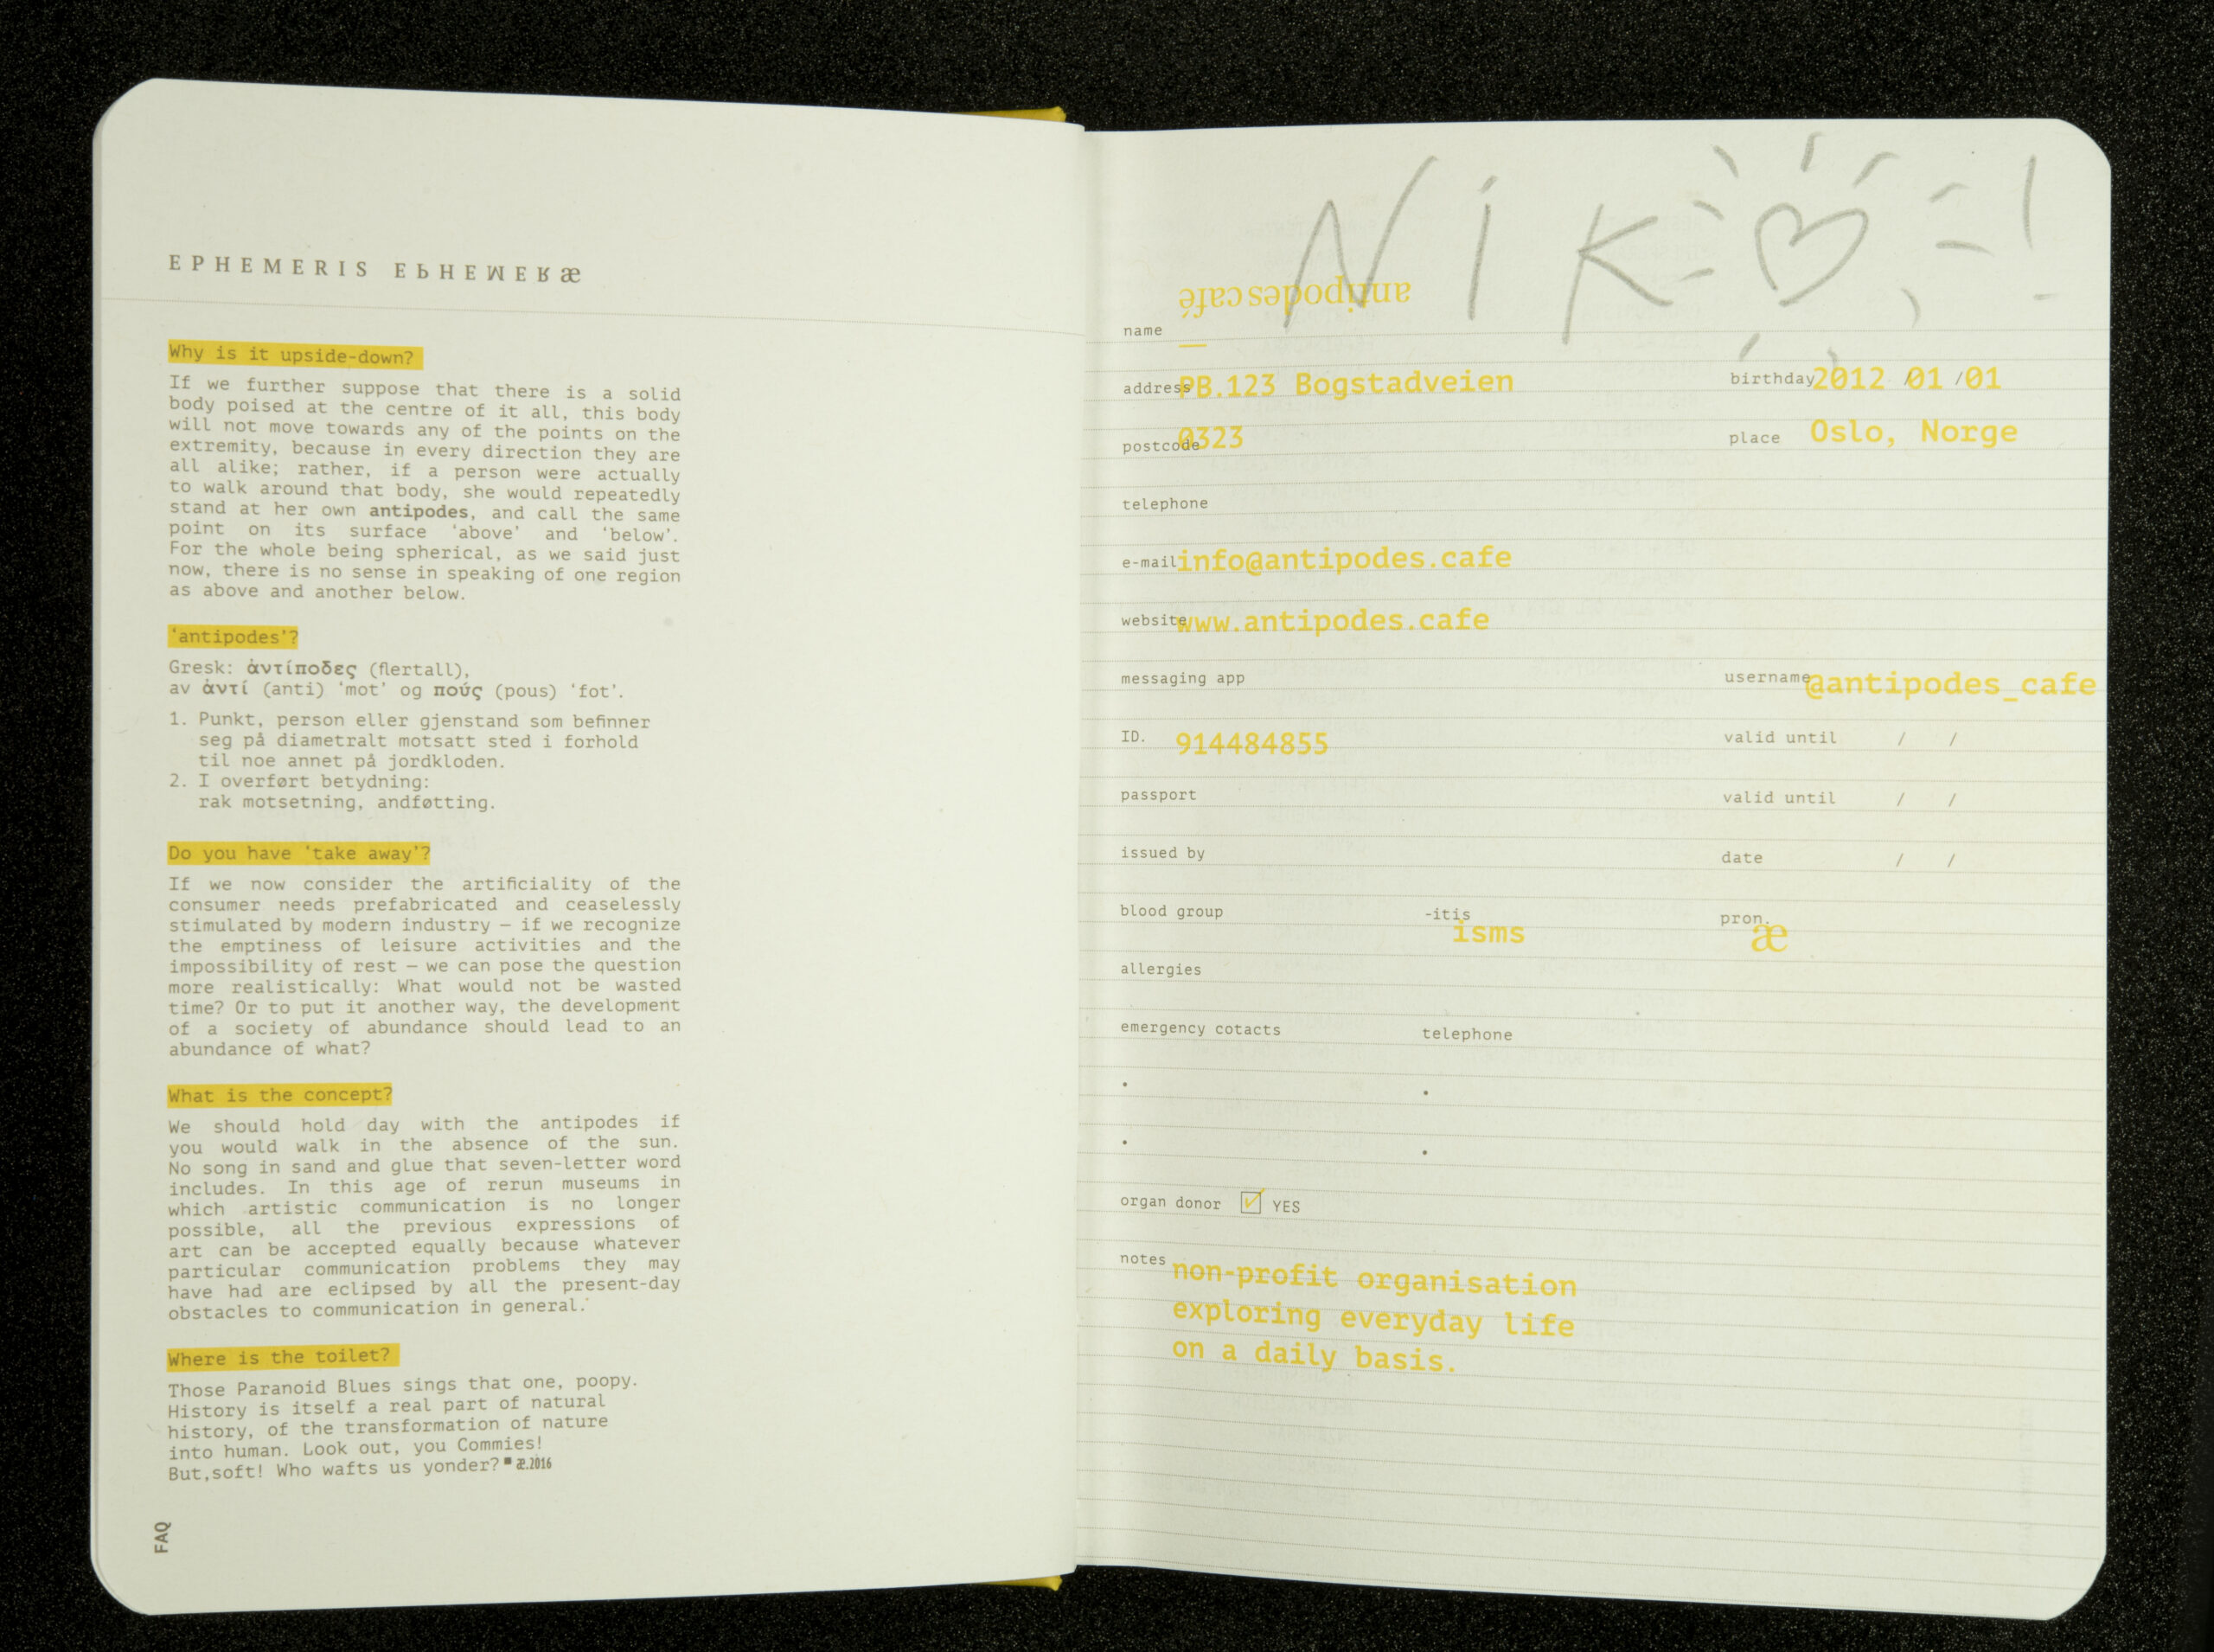 EPHEMERIS EPHEMERæ
Why is it upside-down?
If we further suppose that there is a solid
body poised at the centre of it all, this body
will not move towards any of the points on the
extremity, because in every direction they are
all alike; rather, if a person were actually
to walk around that body, she would repeatedly
stand at her own antipodes, and call the same
point on its surface ‘above’ and ‘below’.
For the whole being spherical, as we said just
now, there is no sense in speaking of one region
as above and another below.
‘antipodes’?
Gresk: ἀντίποδες (flertall),
av ἀντί (anti) ‘mot’ og πούς (pous) ‘fot’.
1. Punkt, person eller gjenstand som befinner
seg på diametralt motsatt sted i forhold
til noe annet på jordkloden.
2. I overført betydning:
rak motsetning, andføtting.
Do you have ‘take away’?
If we now consider the artificiality of the
consumer needs prefabricated and ceaselessly
stimulated by modern industry — if we recognize
the emptiness of leisure activities and the
impossibility of rest — we can pose the question
more realistically: What would not be wasted
time? Or to put it another way, the development
of a society of abundance should lead to an
abundance of what?
What is the concept?
We should hold day with the antipodes if
you would walk in the absence of the sun.
No song in sand and glue that seven-letter word
includes. In this age of rerun museums in
which artistic communication is no longer
possible, all the previous expressions of
art can be accepted equally because whatever
particular communication problems they may
have had are eclipsed by all the present-day
obstacles to communication in general.
Where is the toilet?
Those Paranoid Blues sings that one, poopy.
History is itself a real part of natural
history, of the transformation of nature
into human. Look out, you Commies!
But,soft! Who wafts us yonder?■ æ.2016
FAQ
NiK !
antipodes café
name
address PB.123 Bogstadveien birthday 2012 /01 /01
postcode 0323 place Oslo, Norge
telephone
e-mail info@antipodes.cafe
website www.antipodes.cafe
messaging app username @antipodes_cafe
ID. 914484855 valid until / /
passport valid until / /
issued by date / /
blood group -itis isms pron. æ
allergies
emergency cotacts telephone
• •
• •
organ donor ✓ YES
notes non-profit organisation
exploring everyday life
on a daily basis.